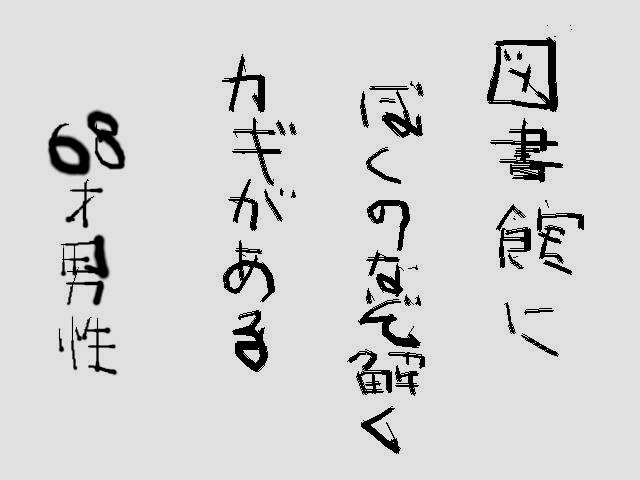 図書館に
ぼくのなぞ解く
カギがある
68才男性